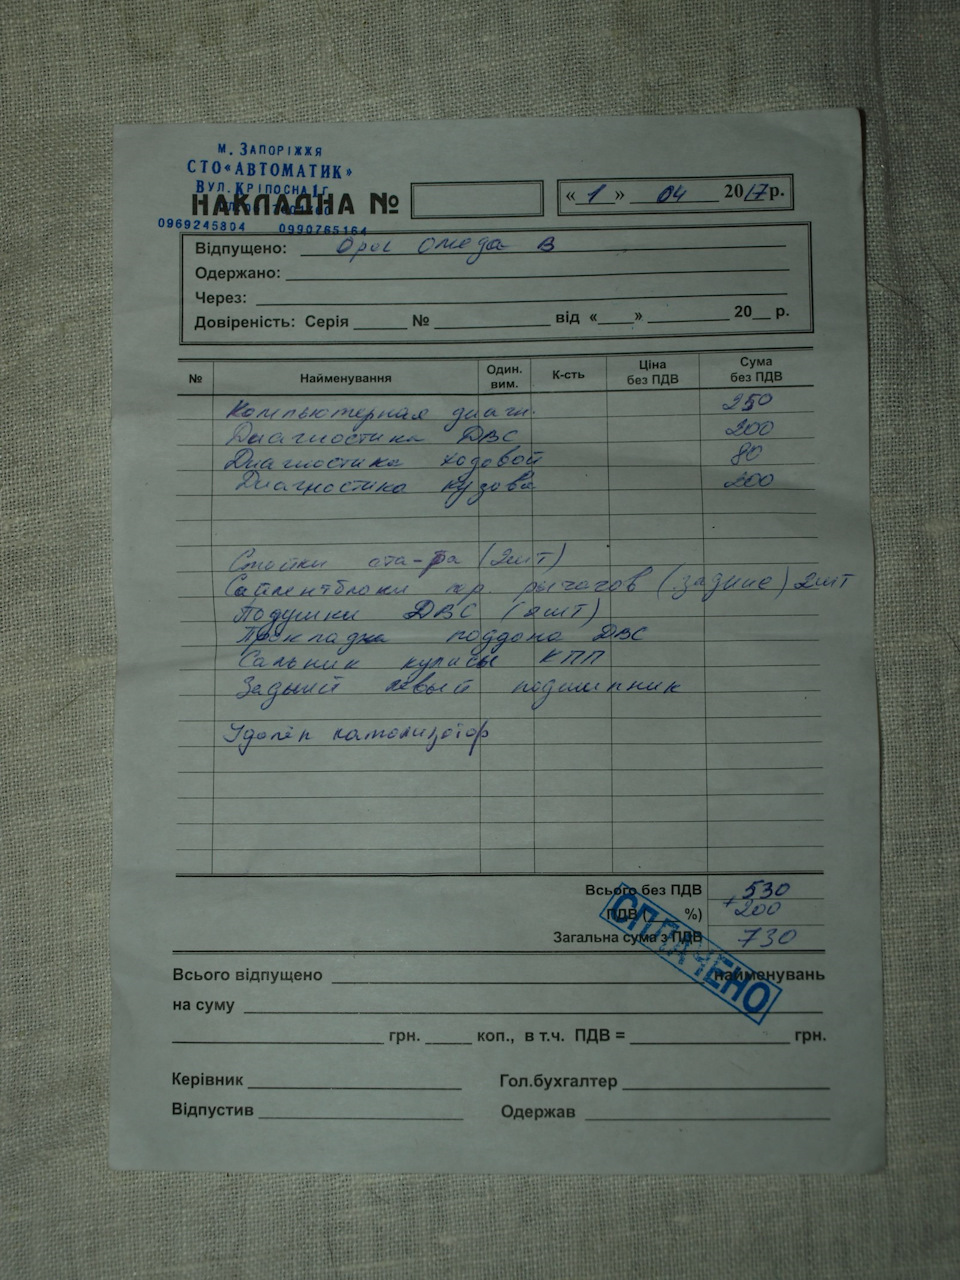 м. Запоріжжя
СТО «АВТОМАТИК»
Вул. Кріпосна 1г
НАКЛАДНА №
« 1 » 04 2017 р.
0969245804 0990765164
Відпущено: Opel Омега В
Одержано:
Через:
Довіреність: Серія № від « » 20 р.
№ Найменування Один. вим. К-сть Ціна без ПДВ Сума без ПДВ
Компьютерная диагн. 250
Диагностика ДВС 200
Диагностика ходовой 80
Диагностика кузова 200
Стойки ста-ра (2шт)
Сайлентблоки пер. рычагов (задние) 2шт
Подушки ДВС (2шт)
Прокладка поддона ДВС
Сальник кулисы КПП
Задний левый подшипник
Удалён катализатор
Всього без ПДВ 530
ПДВ ( %) + 200
Загальна сума з ПДВ 730
СПЛАЧЕНО
Всього відпущено найменувань
на суму
грн. коп., в т.ч. ПДВ = грн.
Керівник Гол.бухгалтер
Відпустив Одержав